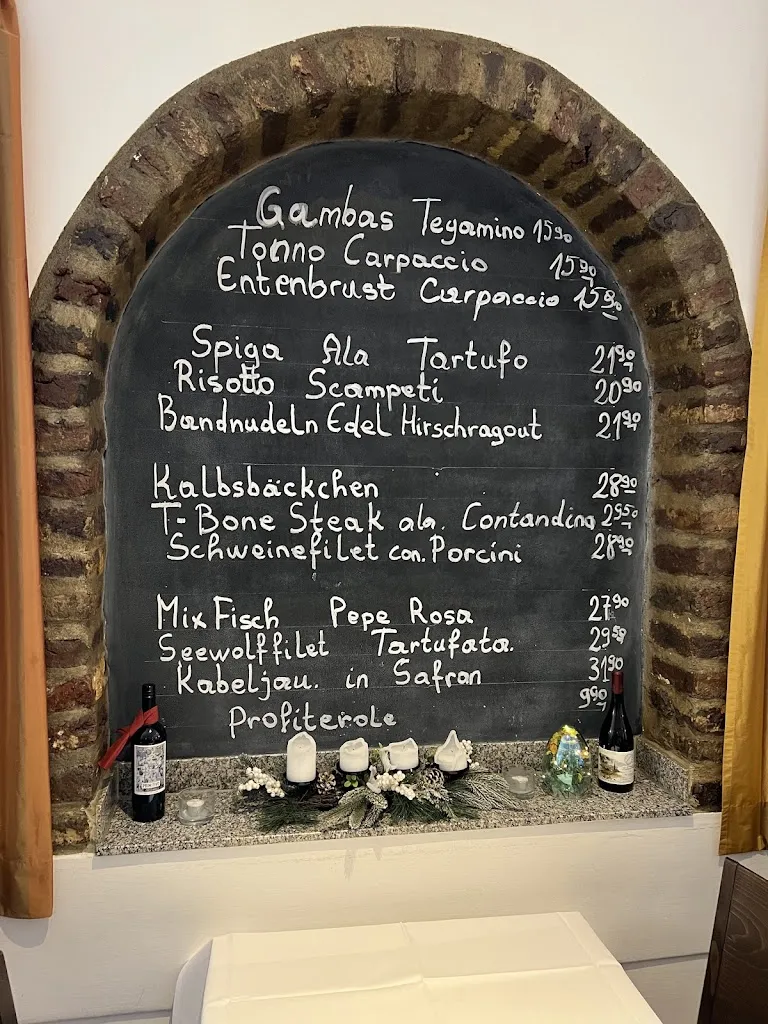 Gambas Tegamino 15⁹⁰
Tonno Carpaccio 15⁹⁰
Entenbrust Carpaccio 15⁹⁰
Spiga Ala Tartufo 21⁹⁰
Risotto Scampeti 20⁹⁰
Bandnudeln Edel Hirschragout 21⁹⁰
Kalbsbäckchen 28⁹⁰
T-Bone Steak ala. Contandina 29⁵⁰
Schweinefilet con. Porcini 28⁹⁰
Mix Fisch Pepe Rosa 27⁹⁰
Seewolffilet Tartufata. 29⁵⁰
Kabeljau. in Safran 31⁹⁰
Profiterole 9⁹⁰